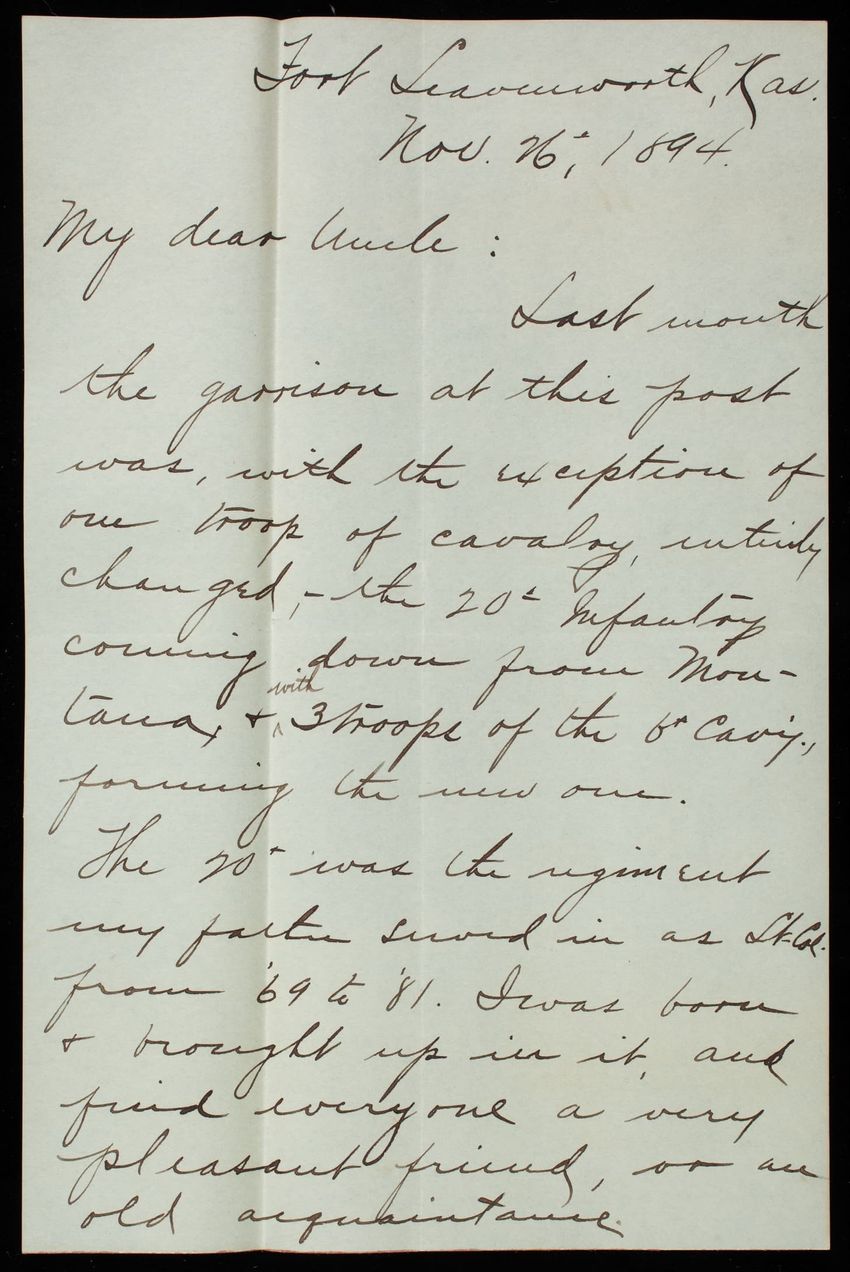 Fort Leavenworth, Kas.
Nov. 26th, 1894.
My dear Uncle:
Last month
the garrison at this post
was, with the exception of
one troop of cavalry, entirely
changed,- the 20th Infantry
coming down from Mon-
tana, & with 3 troops of the 6th Cav'y.,
forming the new one.
The 20th was the regiment
my father served in as Lt-Col.
from '69 to '81. I was born
& brought up in it, and
find everyone a very
pleasant friend, or an
old acquaintance.